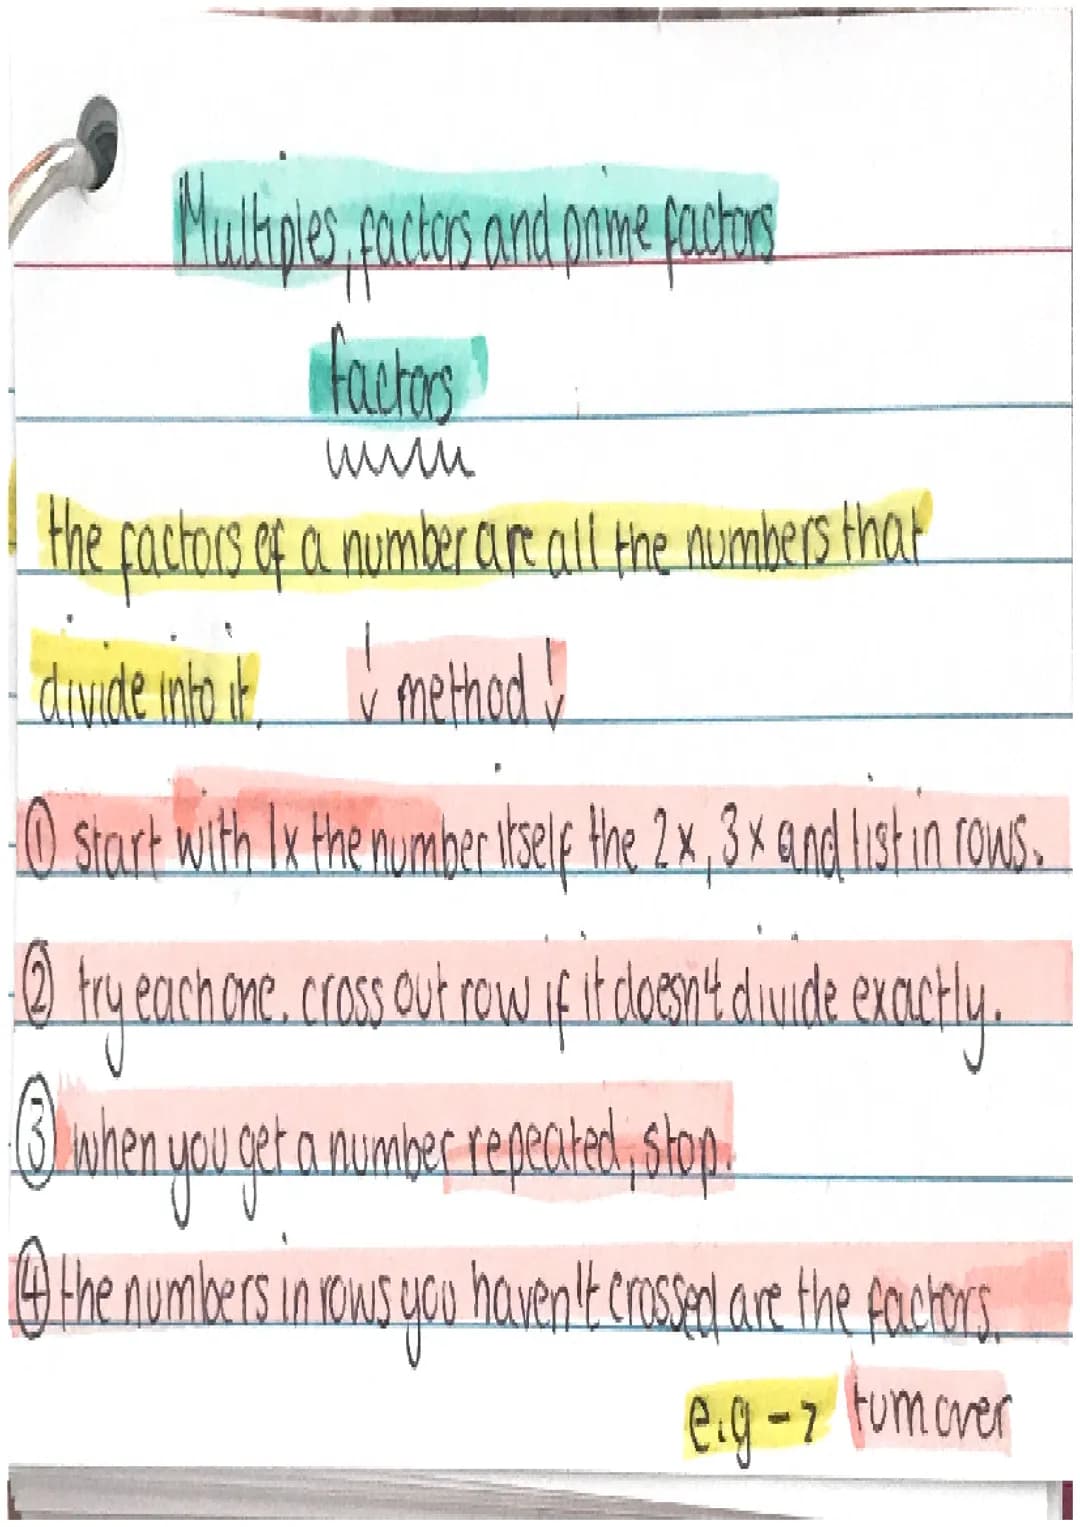 Multiples, factors and prime factors
factors
the factors of a number are all the numbers that
divide into it. ↓ method ↓
① start with 1x the number itself the 2x, 3x and list in rows.
② try each one. cross out row if it doesn't divide exactly.
③ when you get a number repeated, stop.
④ the numbers in rows you haven't crossed are the factors.
e.g -> turn over